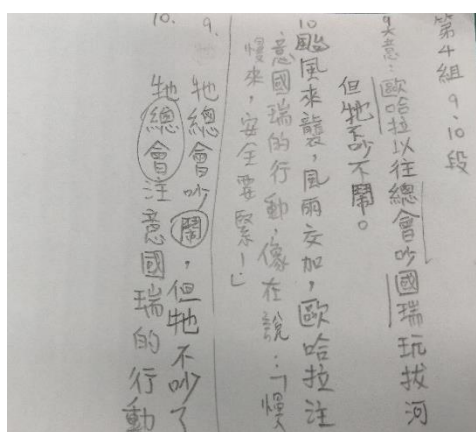 第4組 9、10段
9大意：歐哈拉以往總會吵國瑞玩拔河
但牠不吵不鬧。
10颱風來襲，風雨交加，歐哈拉注
意國瑞的行動，像在說：「慢
慢來，安全要緊！」
9. 牠總會吵鬧，但牠不吵了
10. 牠總會注意國瑞的行動